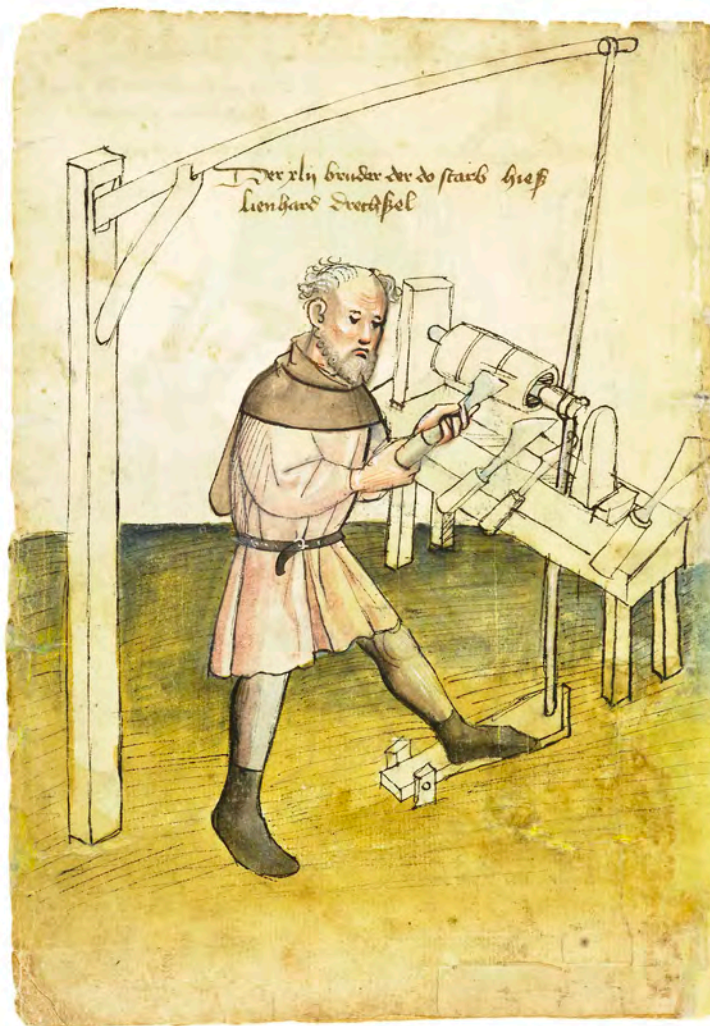 Der xlij bruder der do starb hieß
lienhard drechßel